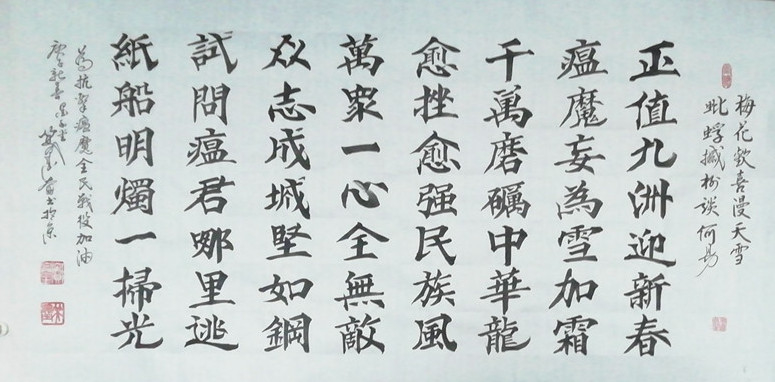 梅花歡喜漫天雪
蚍蜉撼樹談何易
正值九洲迎新春
瘟魔妄為雪加霜
千萬磨礪中華龍
愈挫愈强民族風
萬衆一心全無敵
众志成城堅如鋼
試問瘟君哪里逃
紙船明燭一掃光
為抗擊瘟魔全民戰役加油
庚子